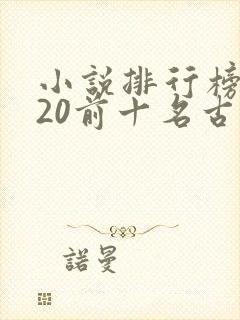 小說排行榜
20前十名古
諾曼